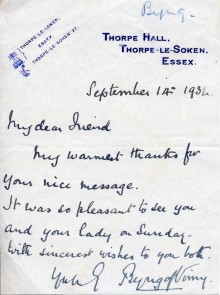 Byng.
THORPE-LE-SOKEN,
ESSEX.
THORPE-LE-SOKEN 27.
THORPE HALL,
THORPE-LE-SOKEN.
ESSEX.
September 14th 193
My dear Friend
My warmest thanks for
your nice message.
It was so pleasant to see you
and your lady on Sunday.
With sincerest wishes to you both.
Byng of Vimy